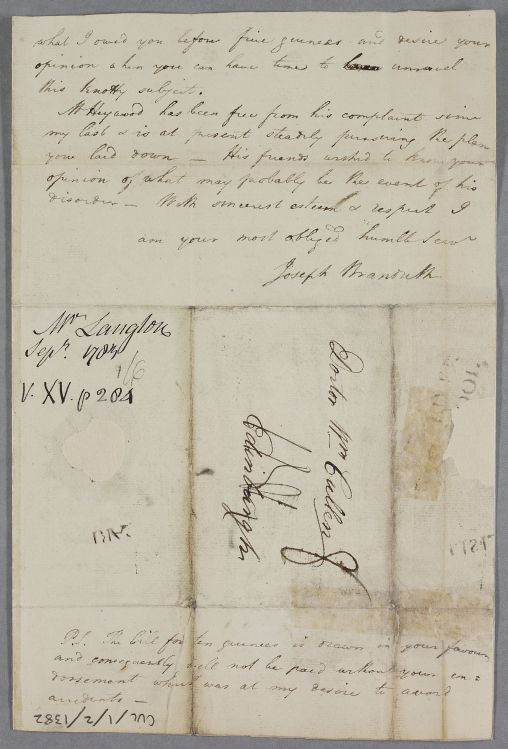 what I owed you before five guineas and desire your
opinion when you can have time to unravel
this knotty subject.
Mr Heywood has been free from his complaint since
my last & is at present steadily pursuing the plan
you laid down — His friends wished to know your
opinion of what may probably be the event of his
disorder — With sincerest esteem & respect I
am your most obliged humble Servt
Joseph Brandreth
Mr. Langton
Sepr. 1784
1/6
V. XV. p 284
Doctor Wm Cullen
Edinburgh
P.S. The bill for ten guineas is drawn in your favour
and consequently will not be paid without your en=
dorsement which was at my desire to avoid
accidents —
CUL/1/2/1382